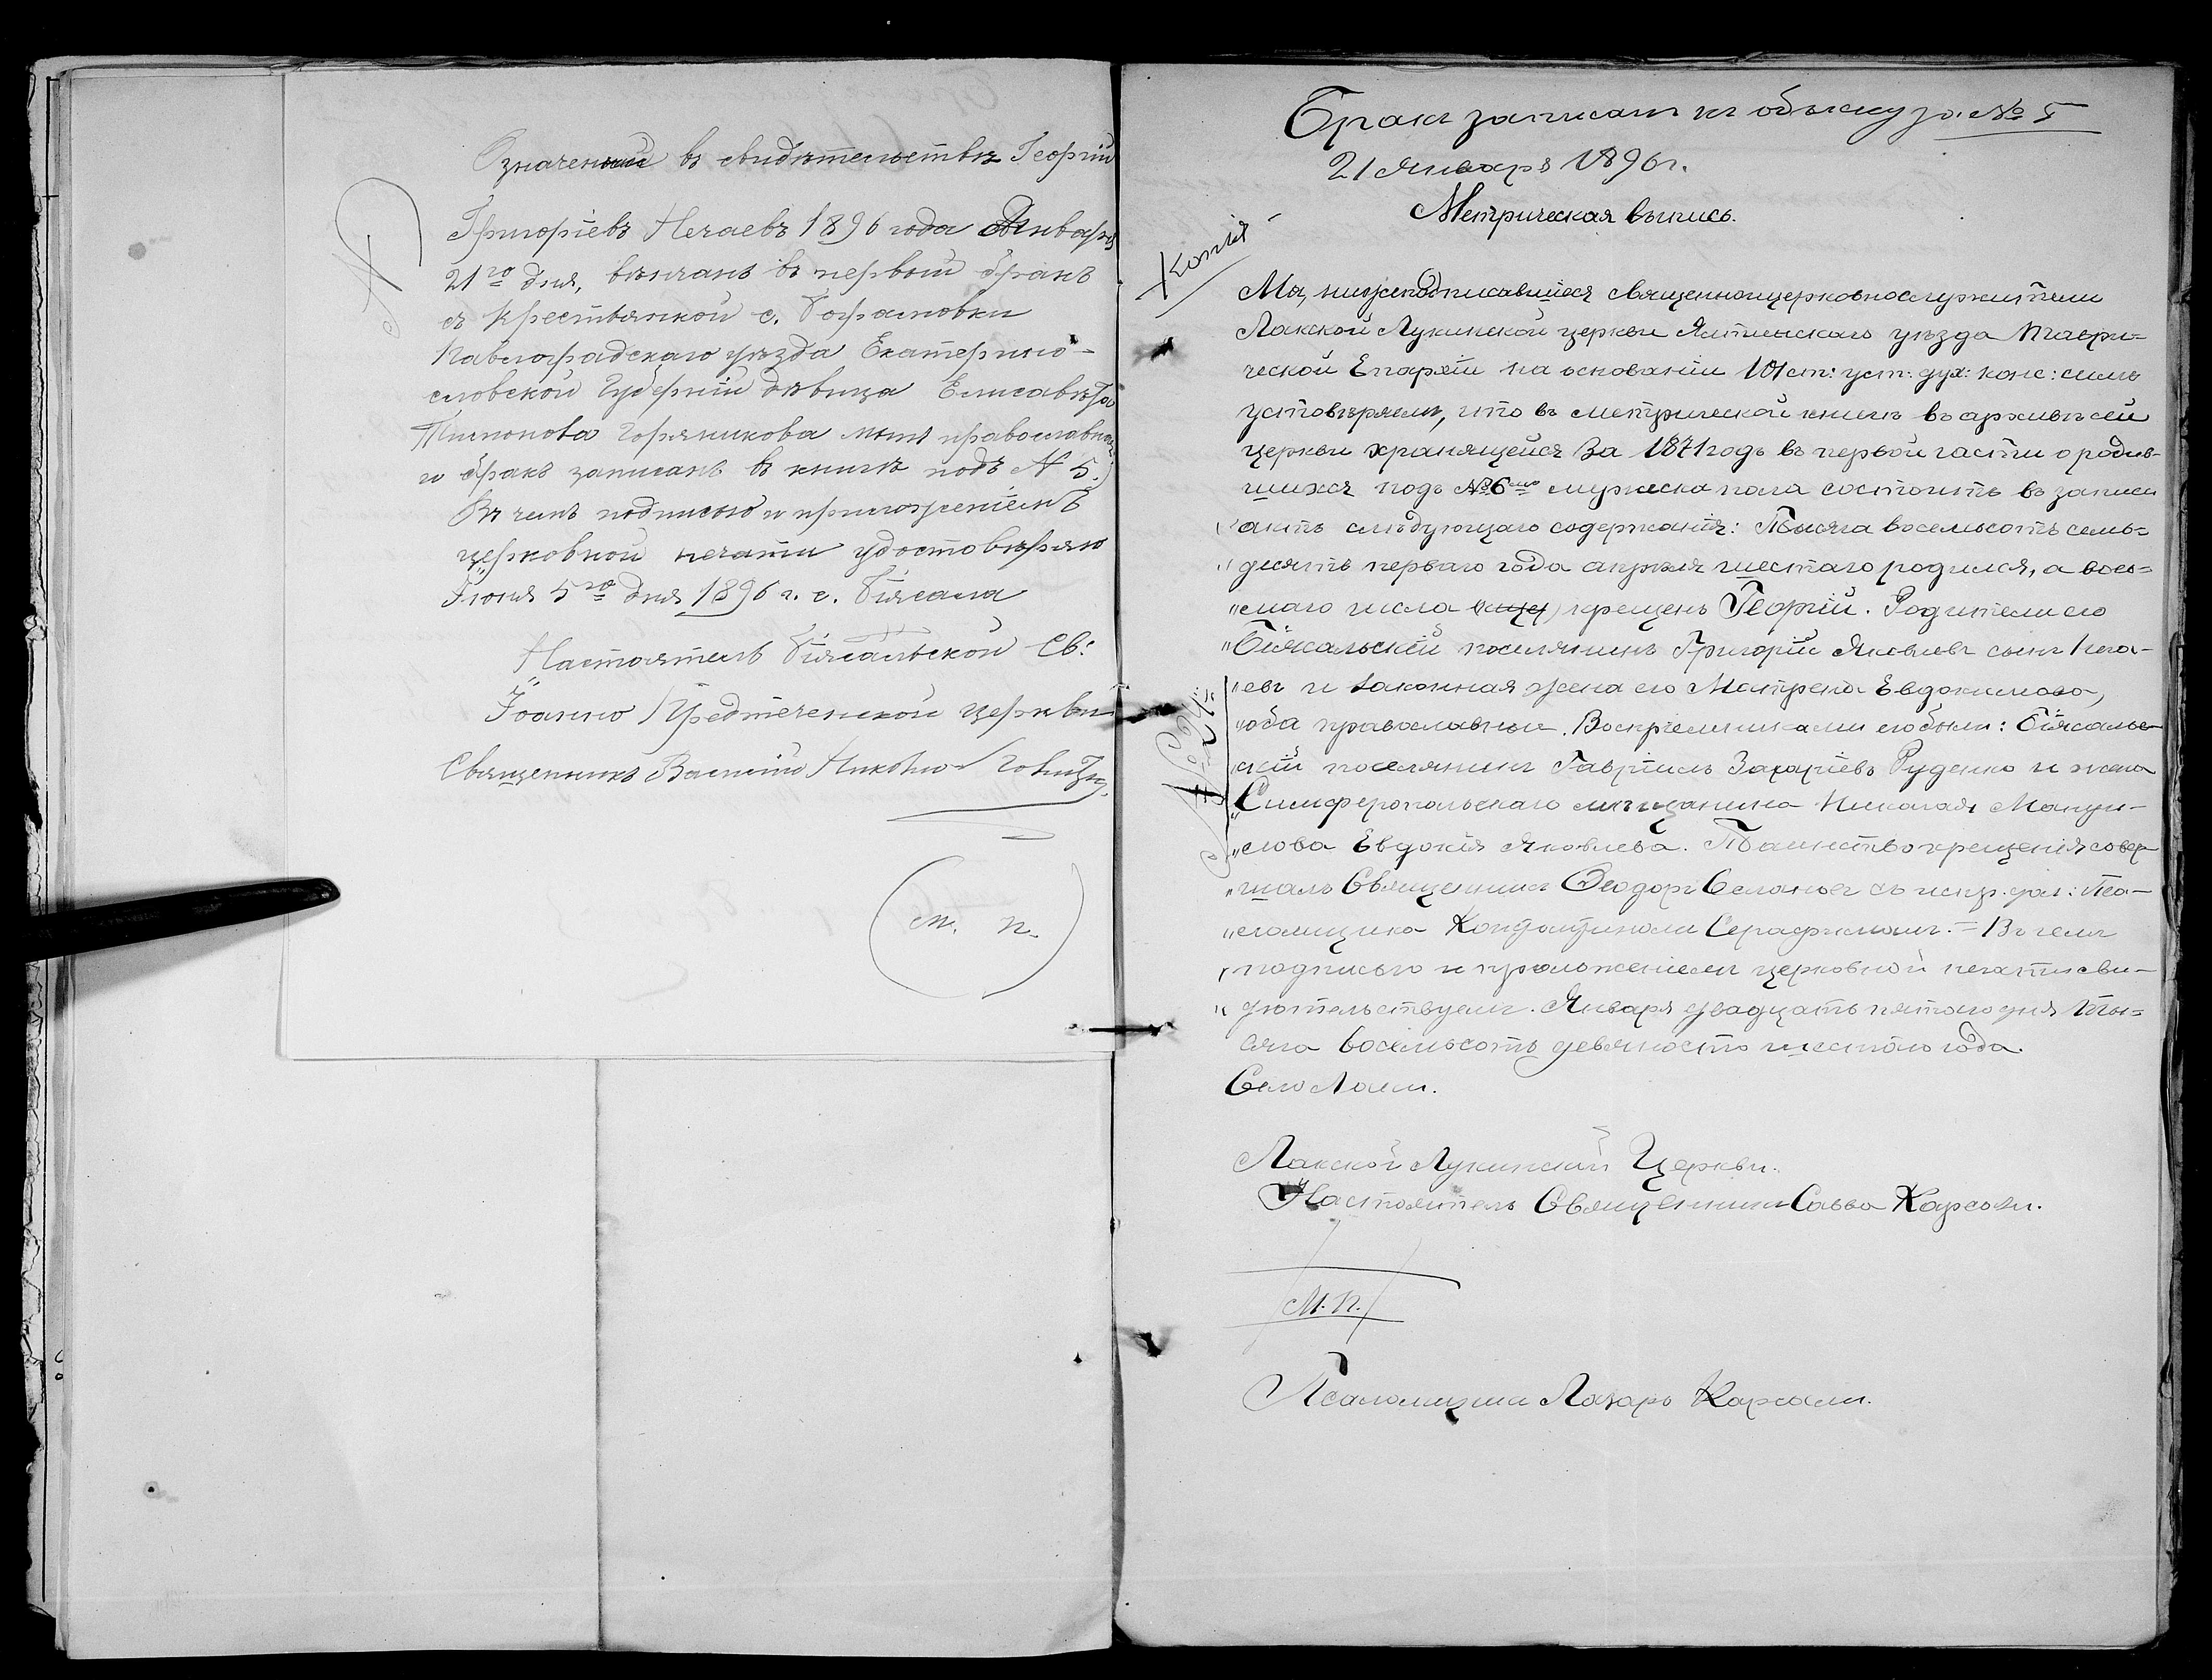 Означенный въ свидѣтельствѣ Георгій
Григоріевъ Нечаевъ 1896 года Января
21го дня, вѣнчанъ въ первый бракъ
съ крестьянкой с. Богдановки
Павлоградскаго уѣзда Екатерино-
славской Губерніи дѣвица Елисавета
Тимонова Горяникова православная
и бракъ записанъ въ книгѣ подъ № 5.
Въ чемъ подписью и приложеніемъ
церковной печати удостовѣряю
Іюня 5го дня 1896 г. с. Біясала
Настоятель Біясальской Св:
Іоанно Предтеченской церкви
Священникъ Василій
М. П.
Бракъ записанъ къ обыску за № 5
21 Января 1896 г.
Метрическая выпись.
Копія
Мы, нижеподписавшіеся священноцерковнослужители
Лакской Лукинской церкви Ялтинскаго уѣзда Таври-
ческой Епархіи на основаніи 101 ст: уст: дух: конс: симъ
устовѣряемъ, что въ метрической книгѣ въ архивѣ сей
церкви хранящейся за 1871 годъ въ первой части о родив-
шихся подъ №6мъ мужеска пола состоитъ въ записи
„актъ слѣдующаго содержанія: Тысяча восемьсотъ семь-
„десятъ перваго года апрѣля шестаго родился, а вось-
„маго числа крещенъ Георгій. Родители его
„Біясальскій поселянинъ Григорій Яковлевъ сынъ Неча-
„евъ и законная жена его Матрена Евдокимова,
„оба православные. Воспріемниками его были: Біясаль-
„скій поселянинъ Гавріилъ Захаріевъ Руденко и жена
„Симферопольскаго мѣщанина Николая Мануи-
„лова Евдокія Яковлева. Таинство крещенія совер-
„шалъ Священникъ Ѳеодоръ съ испр. дол: Пса-
„ломщика Серафимовъ. = Въ чемъ
„подписью и приложеніемъ церковной печати сви-
„дѣтельствуемъ. Января двадцать пятого дня Ты-
сяча восемьсотъ девяносто шестого года.
Село Лаки.
Лакской Лукинской Церкви.
Настоятель Священникъ Савва
М. П.
Псаломщикъ Лазарь